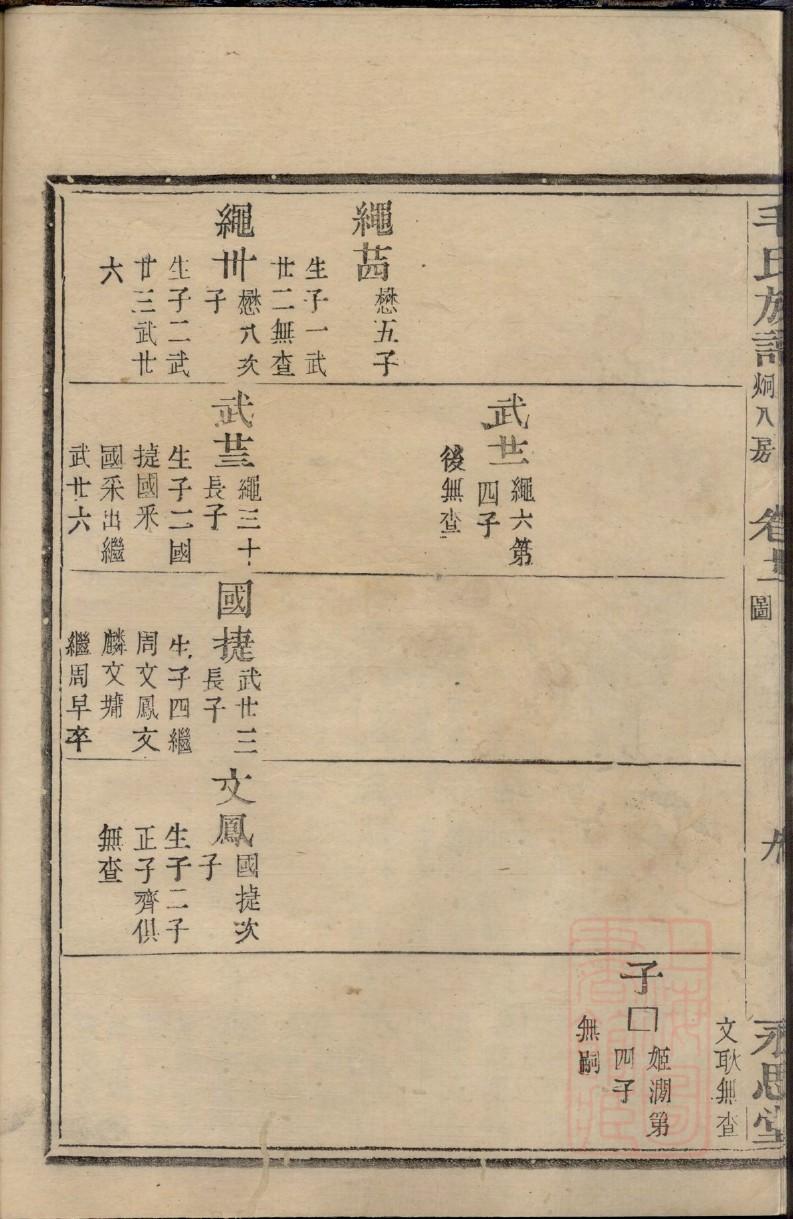 毛氏族譜
炯八房
圖
九
永思堂
繩苗
懋五子
生子一武
廿二無查
繩卅
懋八次
子
生子二武
廿三武廿
六
武廿二
繩六第
四子
後無查
武廿三
繩三十
長子
生子二國
捷國釆
國釆出繼
武廿六
國捷
武廿三
長子
生子四繼
周文鳳文
麟文墉
繼周早卒
文鳳
國捷次
子
生子二子
正子齊俱
無查
文耿無查
子口
姬澗第
四子
無嗣